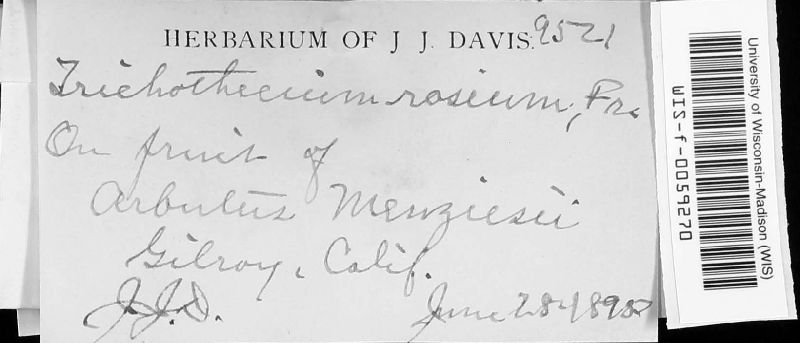 HERBARIUM OF J J. DAVIS. 9521
Trichothecium roseum, Fr.
On fruit of
Arbutus Menziesii
Gilroy, Calif.
J.J.D. June 28
University of Wisconsin-Madison (WIS)
WIS-f-0059270